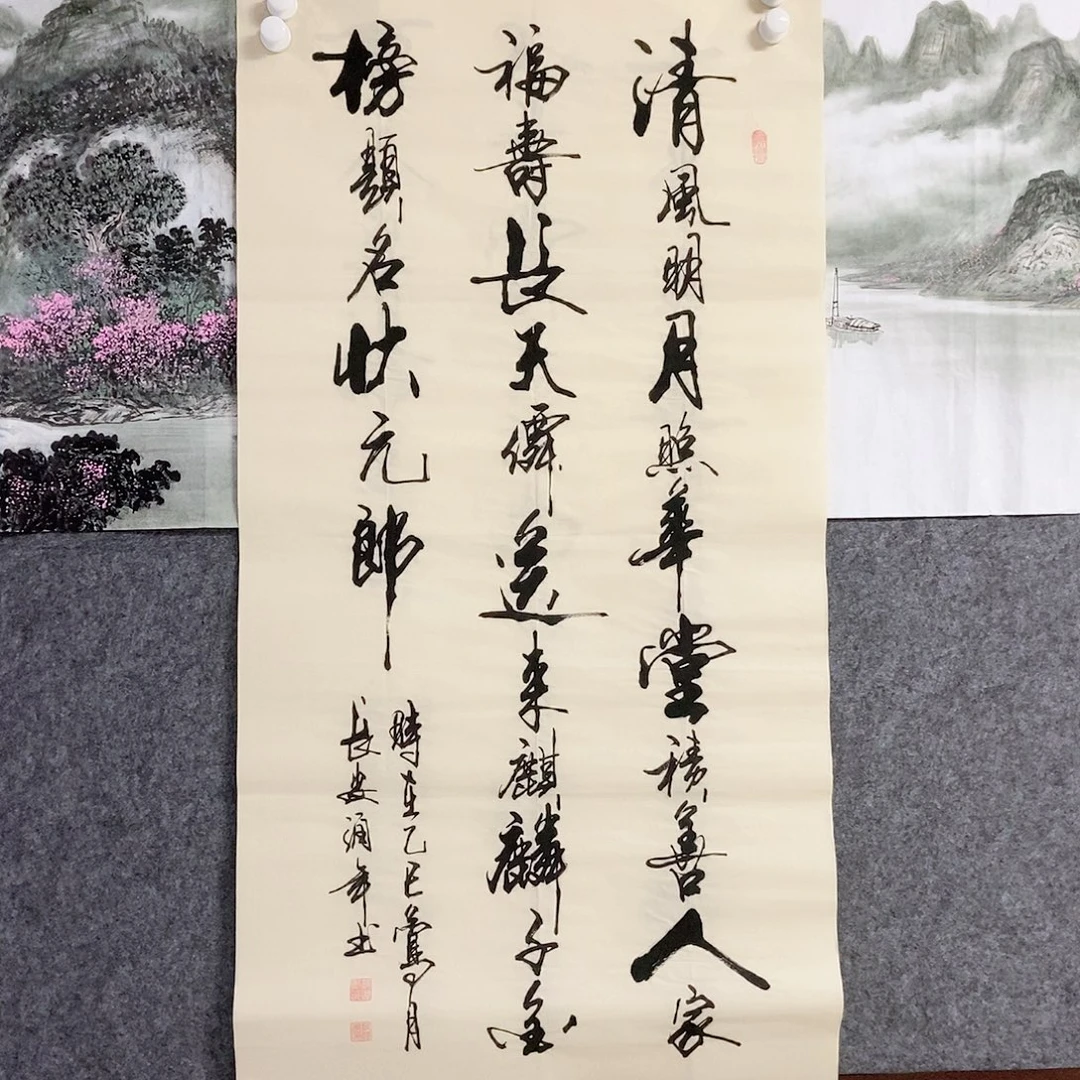 清風明月照華堂積善人家
福壽長天僊送來麒麟子金
榜題名狀元郎
時在乙巳月
長安涌年书